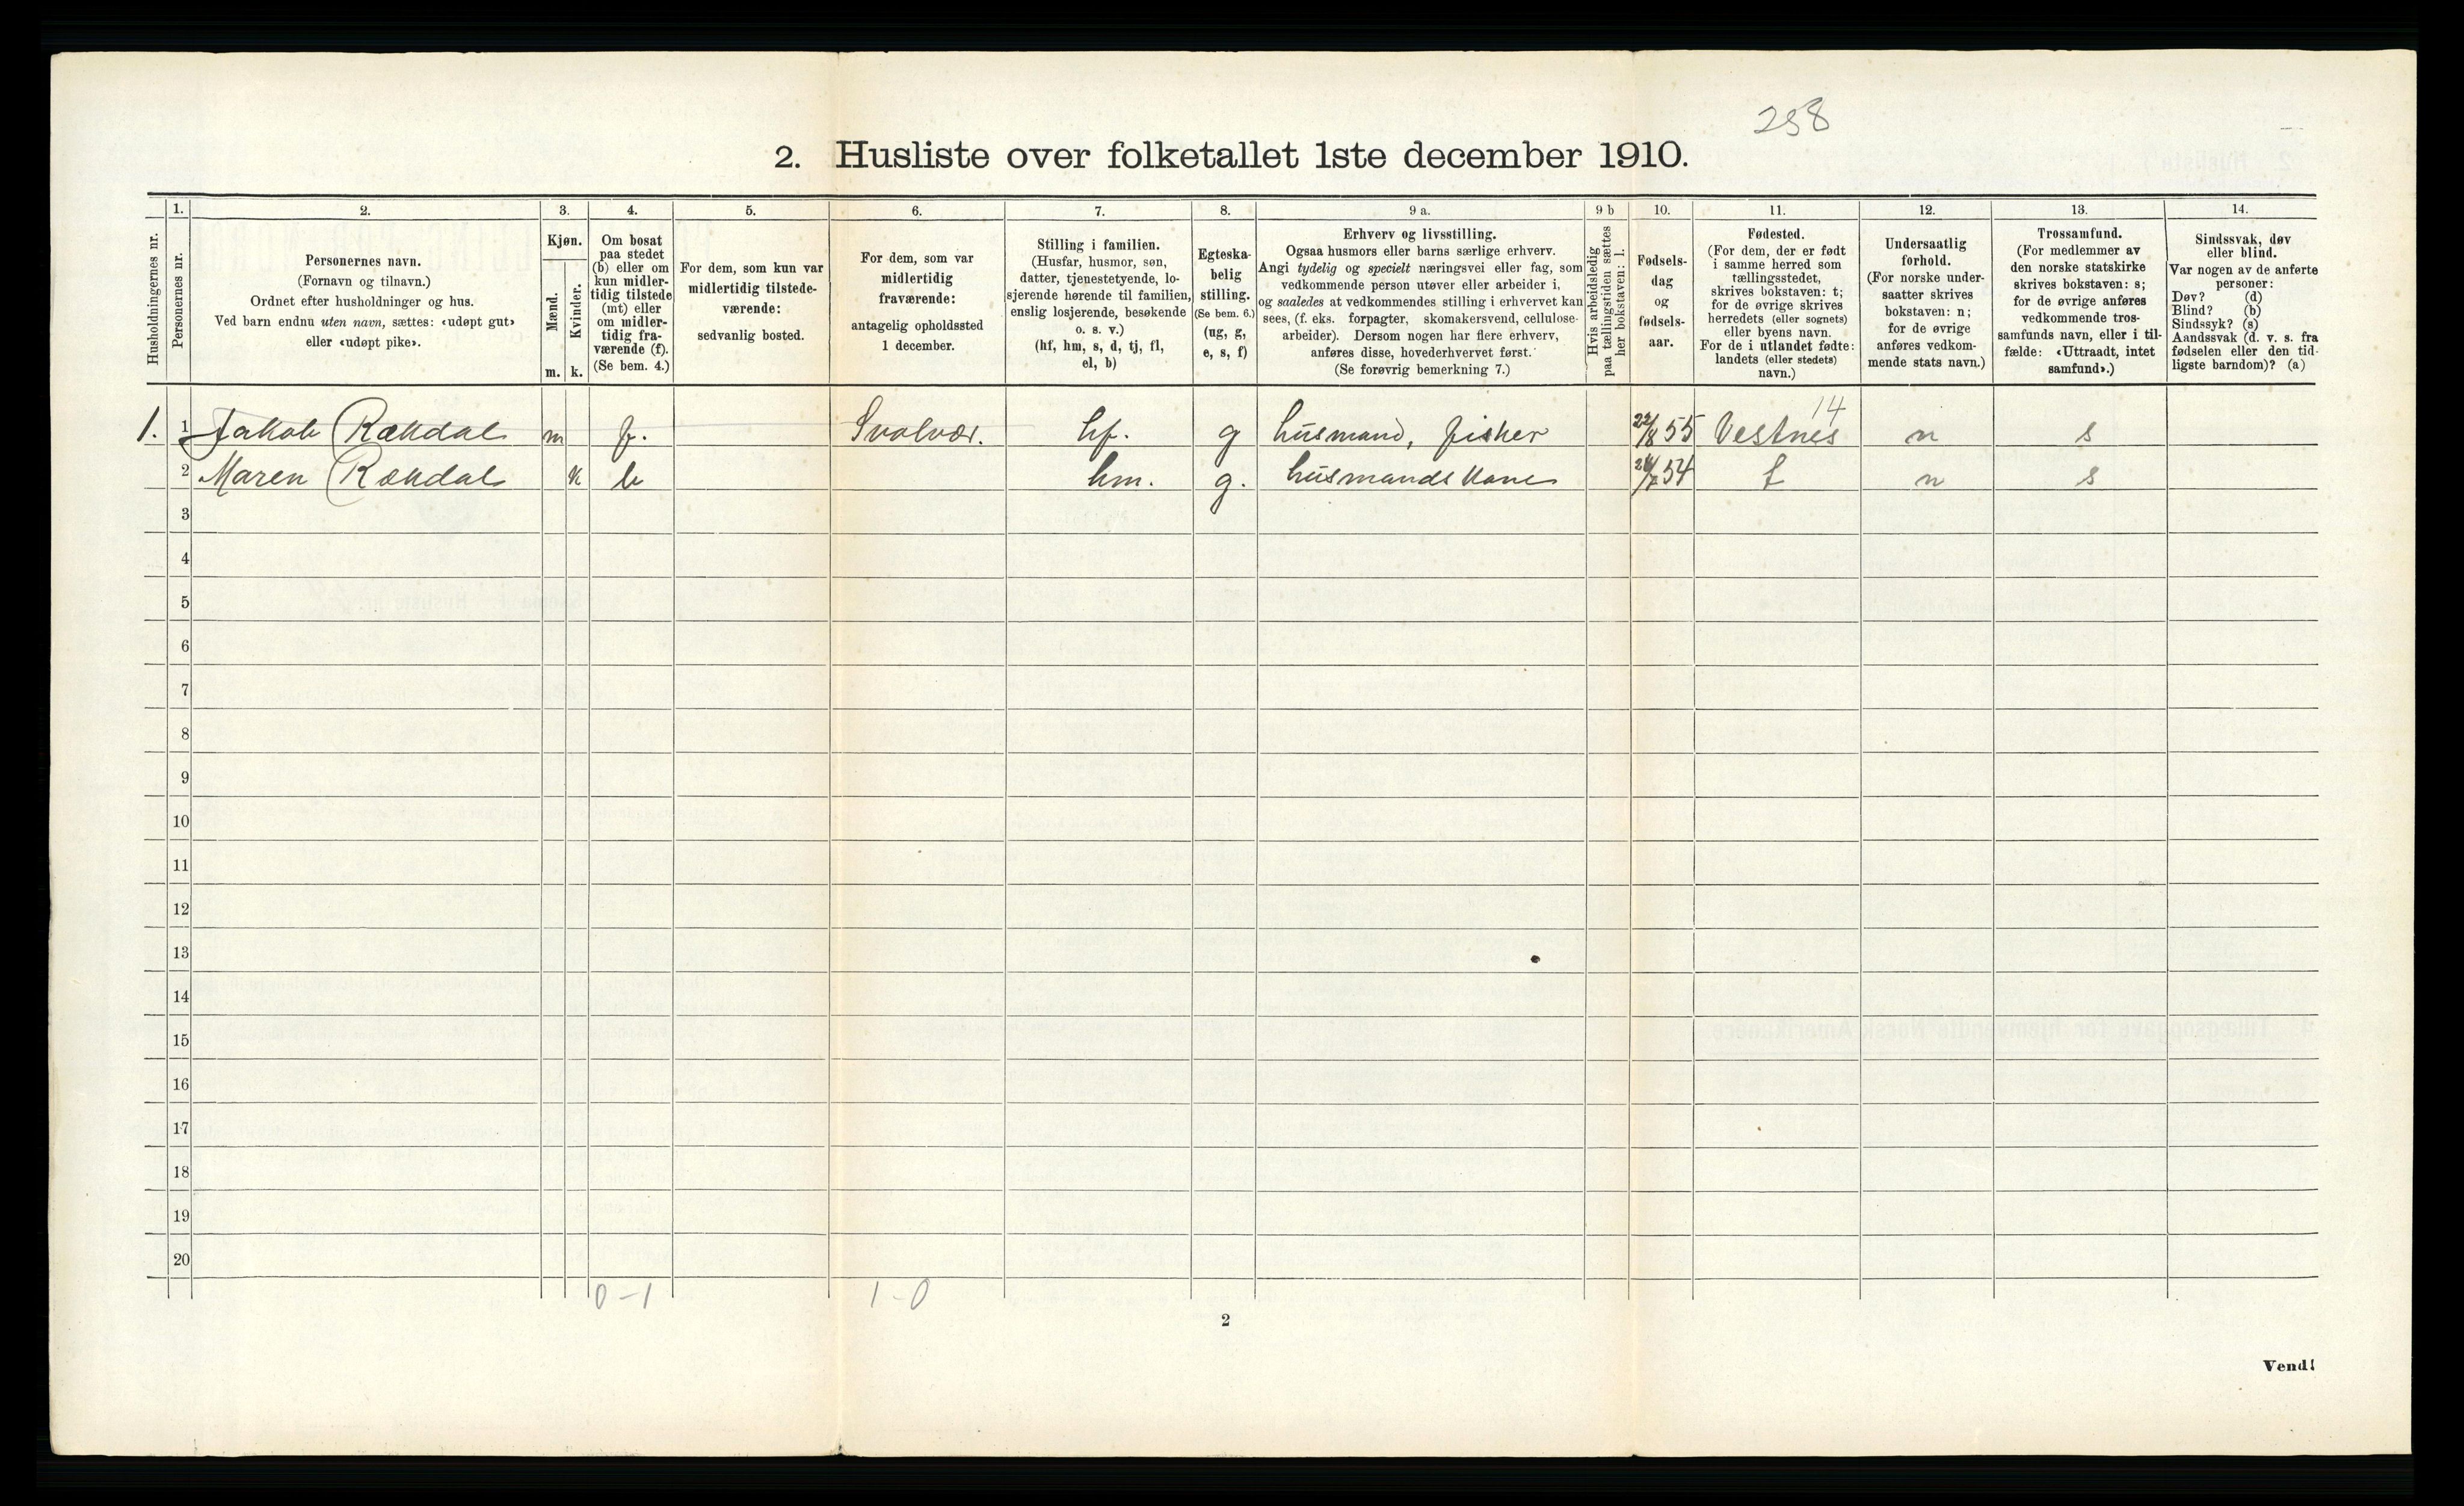 258
2. Husliste over folketallet 1ste december 1910.
Husholdningernes nr.
1. Personernes nr.
2. Personernes navn.
(Fornavn og tilnavn.)
Ordnet efter husholdninger og hus.
Ved barn endnu uten navn, sættes: «udøpt gut»
eller «udøpt pike».
3. Kjøn.
Mænd. m.
Kvinder. k.
4. Om bosat
paa stedet
(b) eller om
kun midler-
tidig tilstede
(mt) eller
om midler-
tidig fra-
værende (f).
(Se bem. 4.)
5. For dem, som kun var
midlertidig tilstede-
værende:
sedvanlig bosted.
6. For dem, som var
midlertidig
fraværende:
antagelig opholdssted
1 december.
7. Stilling i familien.
(Husfar, husmor, søn,
datter, tjenestetyende, lo-
sjerende hørende til familien,
enslig losjerende, besøkende
o. s. v.)
(hf, hm, s, d, tj, fl,
el, b)
8. Egteska-
belig
stilling.
(Se bem. 6.)
(ug, g,
e, s, f)
9 a. Erhverv og livsstilling.
Ogsaa husmors eller barns særlige erhverv.
Angi tydelig og specielt næringsvei eller fag, som
vedkommende person utøver eller arbeider i,
og saaledes at vedkommendes stilling i erhvervet kan
sees, (f. eks. forpagter, skomakersvend, cellulose-
arbeider). Dersom nogen har flere erhverv,
anføres disse, hovederhvervet først.
(Se forøvrig bemerkning 7.)
9 b Hvis arbeidsledig
paa tællingstiden sættes
her bokstaven: l.
10. Fødsels-
dag
og
fødsels-
aar.
11. Fødested.
(For dem, der er født
i samme herred som
tællingsstedet,
skrives bokstaven: t;
for de øvrige skrives
herredets (eller sognets)
eller byens navn.
For de i utlandet fødte:
landets (eller stedets)
navn.)
12. Undersaatlig
forhold.
(For norske under-
saatter skrives
bokstaven: n;
for de øvrige
anføres vedkom-
mende stats navn.)
13. Trossamfund.
(For medlemmer av
den norske statskirke
skrives bokstaven: s;
for de øvrige anføres
vedkommende tros-
samfunds navn, eller i til-
fælde: «Uttraadt, intet
samfund».)
14. Sindssvak, døv
eller blind.
Var nogen av de anførte
personer:
Døv? (d)
Blind? (b)
Sindssyk? (s)
Aandssvak (d. v. s. fra
fødselen eller den tid-
ligste barndom)? (a)
14
1. 1 Jakob Rækdal m f. Svolvær. hf. g husmand, fisker 22/8 55 Vestnes n s
2 Maren Rækdal k b hm. g. husmandskone 54 t n s
3
4
5
6
7
8
9
10
11
12
13
14
15
16
17
18
19
20
0-1 1-0
2
Vend!